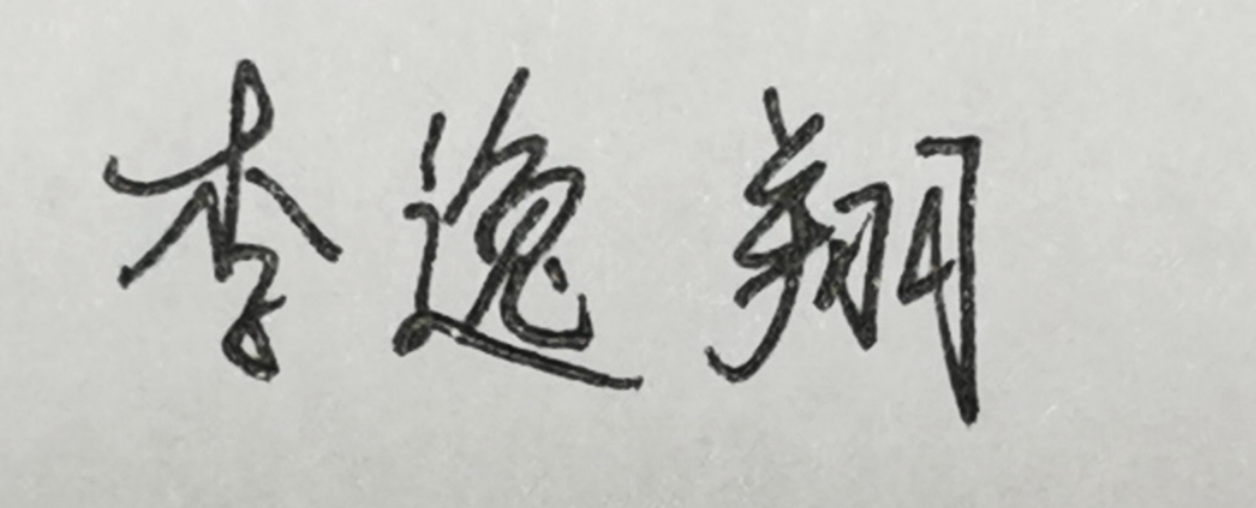 李逸翔